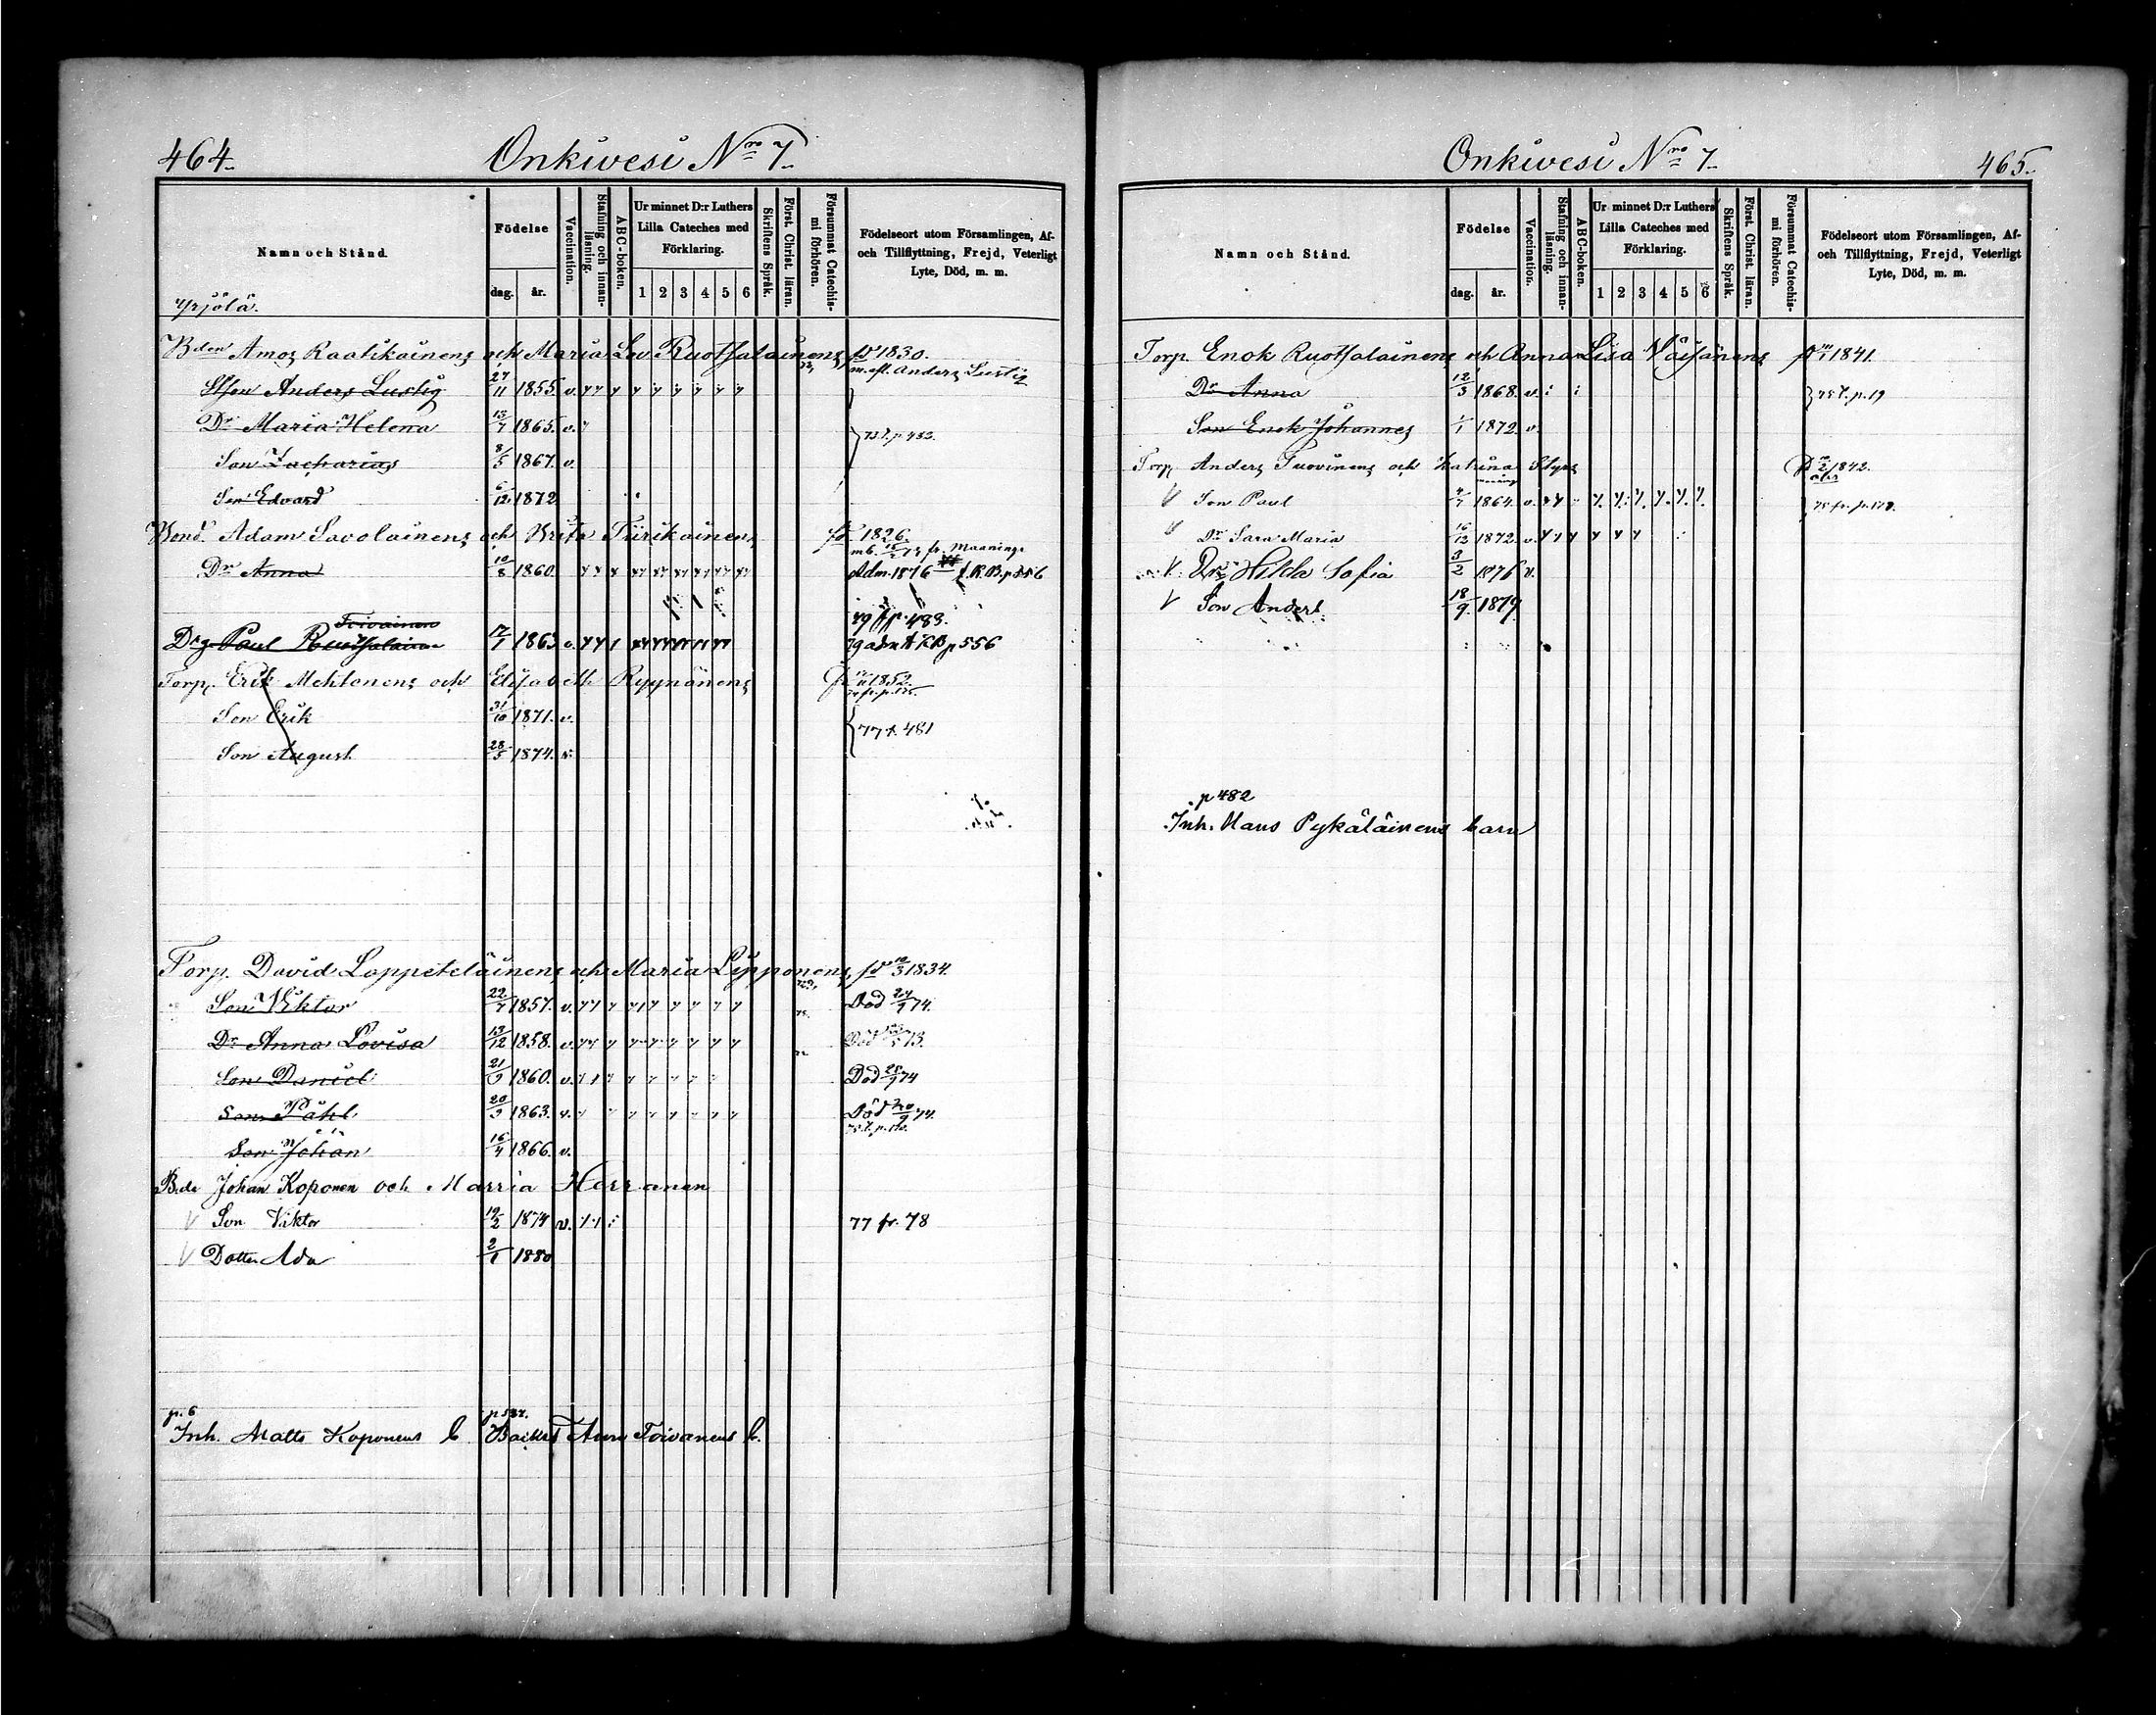 464.
Onkivesi Nro 7.
Namn och Stånd.
Födelse
dag. år.
Vaccination.
Stafning och innanläsning.
ABC-boken.
Ur minnet D:r Luthers Lilla Cateches med Förklaring.
1 2 3 4 5 6
Skriftens Språk.
Först. Christ. läran.
Försummat Catechismi förhören.
Födelseort utom Församlingen, Af- och Tillflyttning, Frejd, Veterligt Lyte, Död, m. m.
Yrjölä.
Bden Amos Raatikainens och Maria Lov. Ruotsalainens fd 1830.
m. efl. Anders Lustig
Anders Lustig 27/11 1855. v.
Dr Maria Helena 15/7 1865. v.
Son Zacharias 8/5 1867. v.
Son Edvard 6/12 1872
Bond. Adam Savolainens och Brita Tiirikainens 1826.
Dr Anna 10/8 1860. Adm. 1876 K.B. p 556
79 p. 483.
Toivainen
Drg Paul Ruotsalainen 17/1 1863 v. 79 adm K B p 556
Torp. Erik Mehtonens och Elisabeth Ryynänens 1852.
Son Erik 31/10 1871. v.
77 t. 481
Son August 28/5 1874. v.
Torp. David Loppeteläinens och Maria Lipponens fd 10/3 1834.
Son Viktor 22/7 1857. v. Död 24/9 74.
Dr Anna Lovisa 13/12 1858. v. Död 73.
Son Daniel 21/9 1860. v. Död 28/9 74
Son Påhl 20/9 1863. v. Död 20/9 74.
Son Johan 16/4 1866. v.
Bde Johan Koponen och Marria Herranen
V Son Viktor 19/2 1874 v. 77 fr. 78
V Dotter Ada 2/1 1880
p. 6 p 537.
Inh. Matts Koponens b Anna Toivanens b.
Onkivesi Nro 7.
465.
Namn och Stånd.
Födelse
dag. år.
Vaccination.
Stafning och innanläsning.
ABC-boken.
Ur minnet D:r Luthers Lilla Cateches med Förklaring.
1 2 3 4 5 6
Skriftens Språk.
Först. Christ. läran.
Försummat Catechismi förhören.
Födelseort utom Församlingen, Af- och Tillflyttning, Frejd, Veterligt Lyte, Död, m. m.
Torp. Enok Ruotsalainens och Anna Lisa Väisänens 1841.
Dr Anna 12/3 1868. v. 75 t. p. 19
Son Enok Johannes 1/1 1872. v.
Torp. Anders Tuovinens och Katrina 1842.
V Son Paul 4/7 1864. v.
V Dr Sara Maria 16/12 1872. v.
V Dr Hilda Sofia 3/2 1876 v.
V Son Anders 18/9 1879
p 482
Inh. Hans Pykäläinens barn